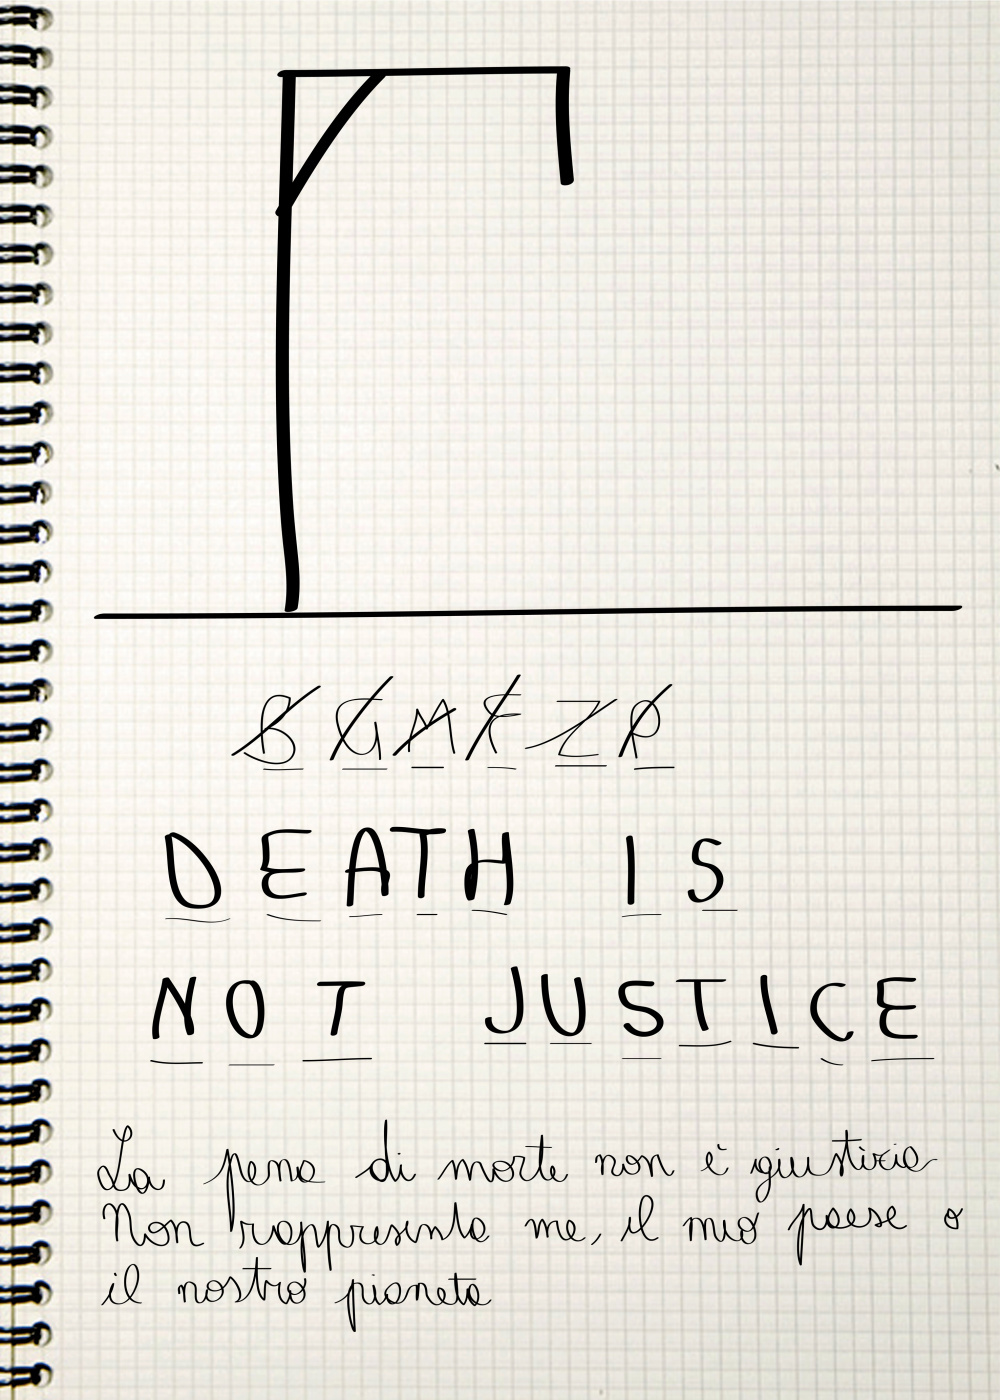 B G M F Z R
DEATH IS
NOT JUSTICE
La pena di morte non è giustizia
Non rappresenta me, il mio paese o
il nostro pianeta